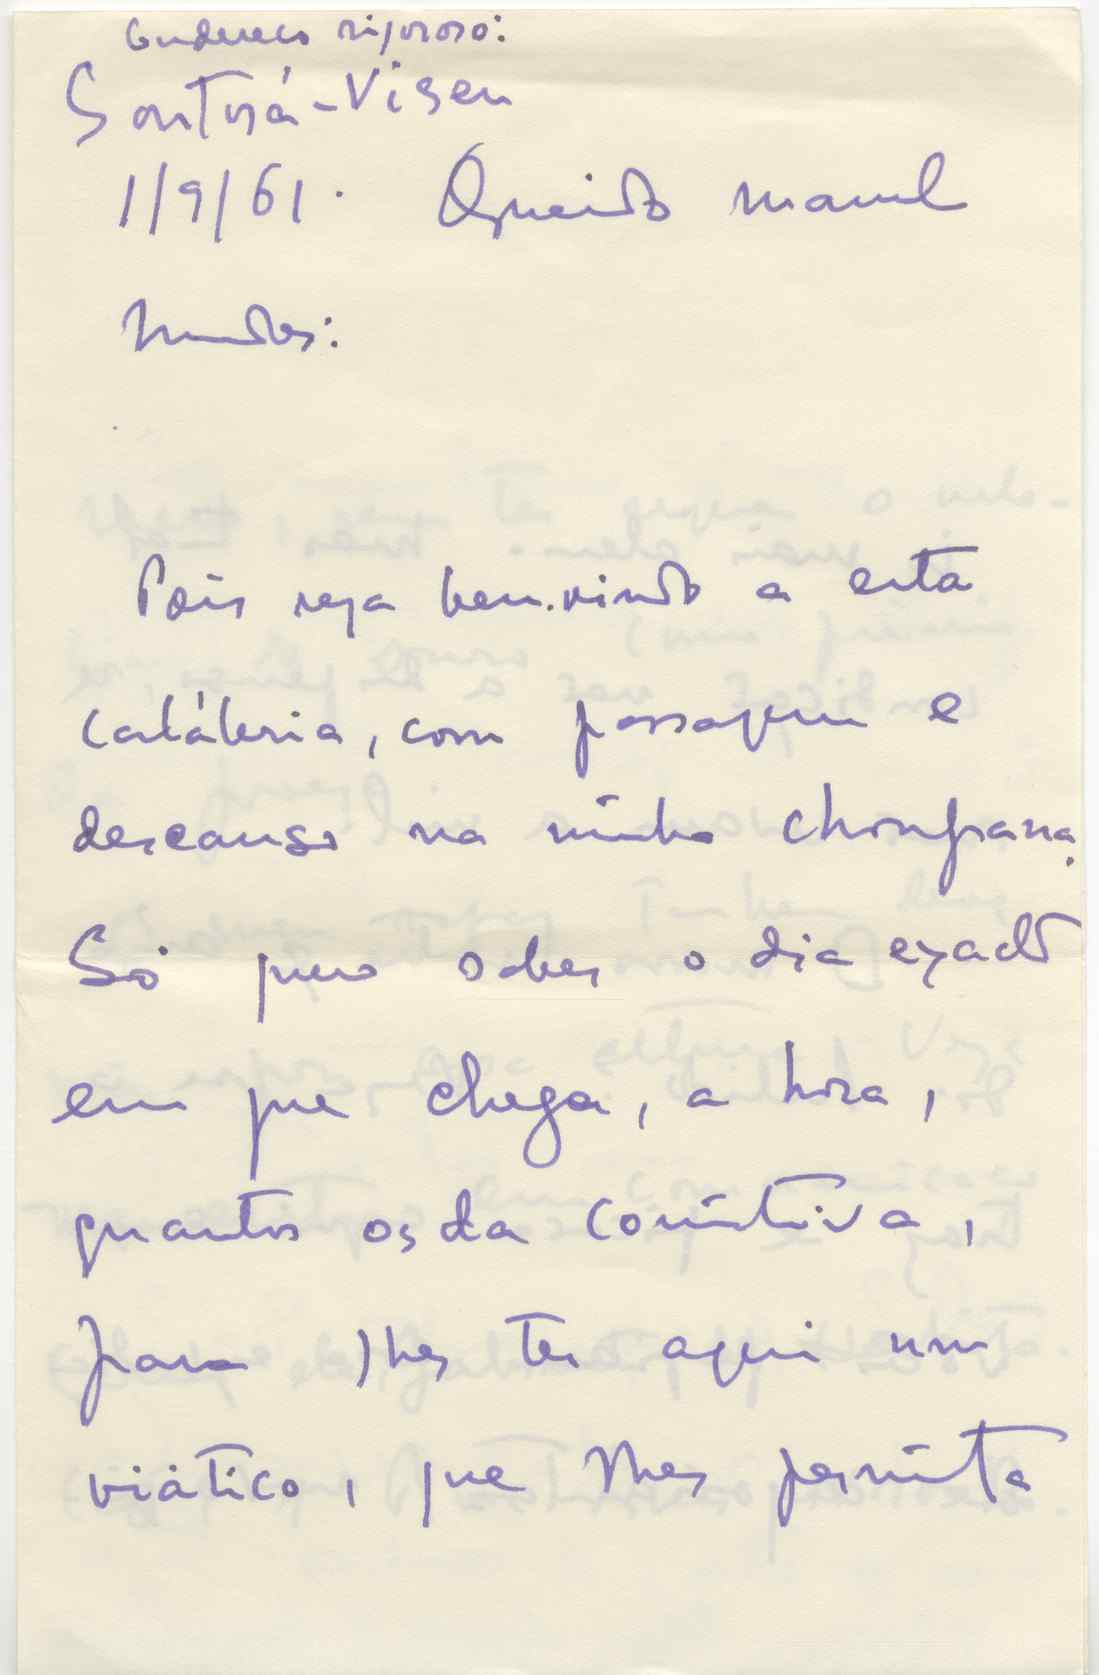 Endereço rigoroso:
Santar-Viseu
1/9/61. Querido Manuel
Mendes:
Pois seja bem.vindo a esta
cataléria, com passagem e
descanso na minha choupana.
Só quero saber o dia exacto
em que chega, a hora,
quantos os da comitiva,
para lhes ter aqui um
viático, que lhes permita